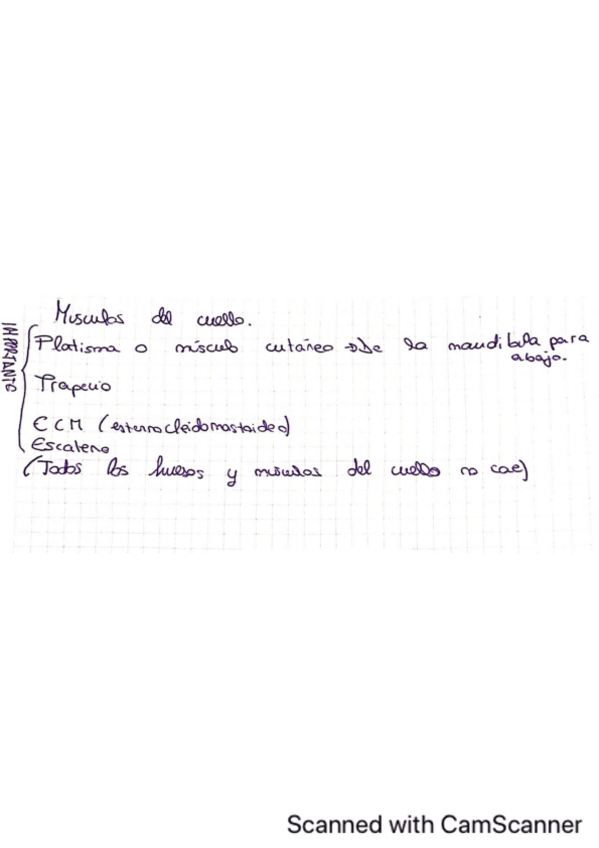 Musculos del cuello.
IMPORTANTE
Platisma o músculo cutáneo → De la mandibula para
abajo.
Trapecio
ECM (esternocleidomastoideo)
Escaleno
(Todos los huesos y músculos del cuello no cae)
Scanned with CamScanner